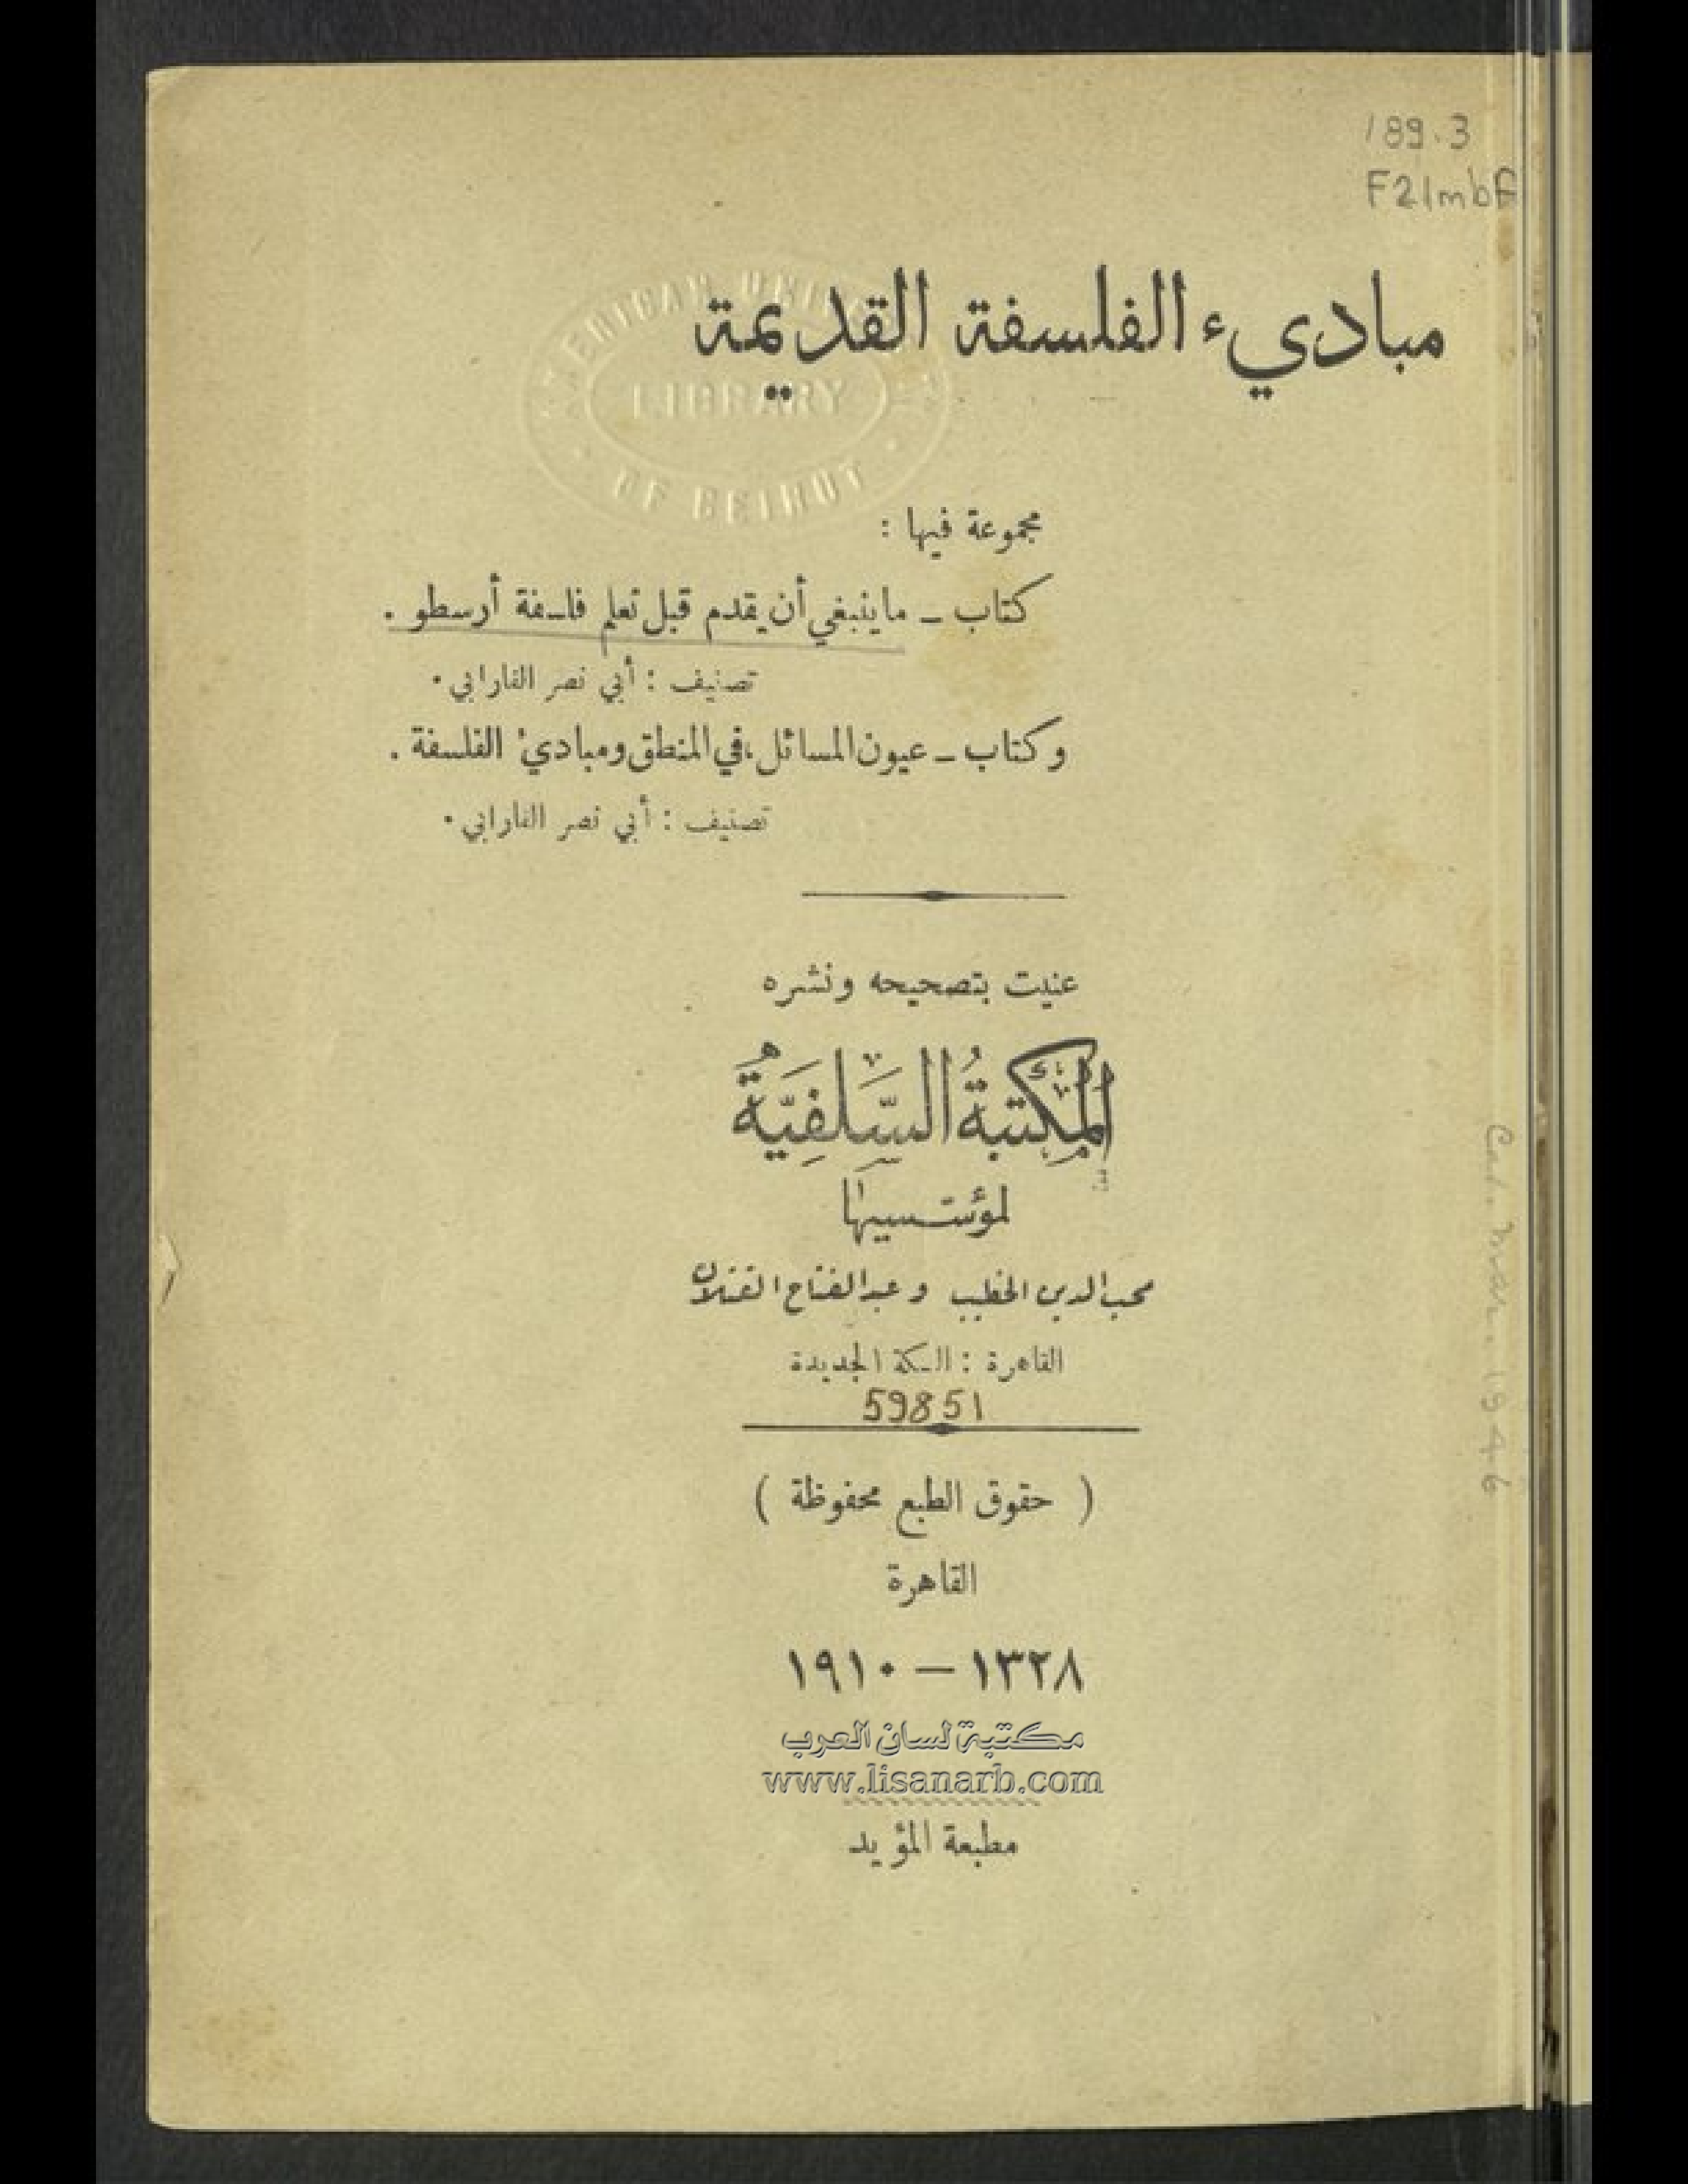 189.3
F21mbA
مباديء الفلسفة القديمة
AMERICAN UNIVERSITY
LIBRARY
OF BEIRUT
مجموعة فيها :
كتاب ـ ماينبغي أن يقدم قبل تعلم فلسفة أرسطو .
تصنيف : أبي نصر الفارابي .
وكتاب ـ عيون المسائل ، في المنطق ومبادئ الفلسفة .
تصنيف : أبي نصر الفارابي .
عنيت بتصحيحه ونشره
المكتبةُ السَّلفِيَّةُ
لمؤسسيها
محب الدين الخطيب وعبد الفتاح القتلان
القاهرة : السكة الجديدة
59851
( حقوق الطبع محفوظة )
القاهرة
١٣٢٨ — ١٩١٠
مكتبة لسان العرب
www.lisanarb.com
مطبعة المؤيد
Cat. Mar. 1946